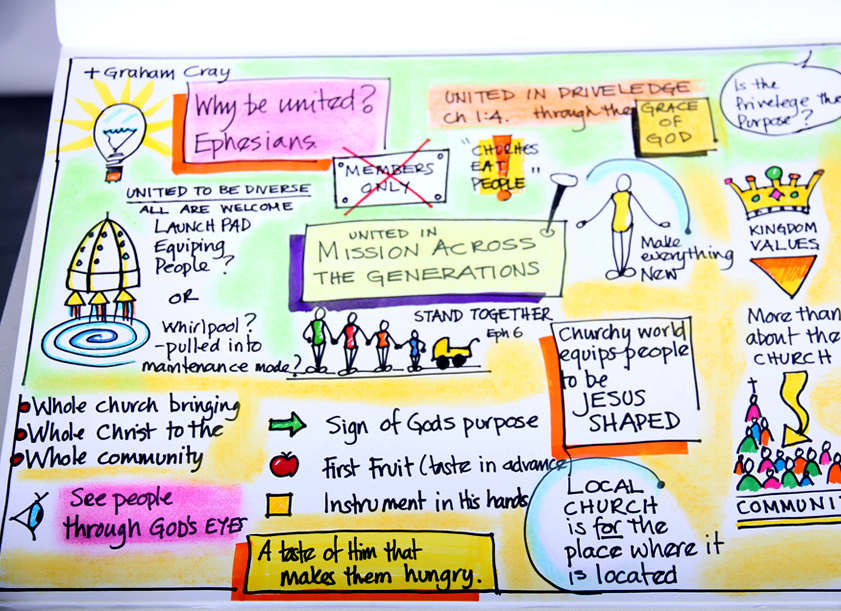 + Graham Cray
Why be united?
Ephesians.
UNITED IN PRIVELEDGE
Ch 1:4. through the
GRACE
OF
GOD
Is the
Privelege the
Purpose?
MEMBERS
ONLY
"CHURCHES
EAT
PEOPLE"
UNITED TO BE DIVERSE
ALL ARE WELCOME
LAUNCH PAD
Equiping
People?
OR
Whirlpool?
-pulled into
maintenance mode?
UNITED IN
MISSION ACROSS
THE GENERATIONS
Make
everything
New
KINGDOM
VALUES
STAND TOGETHER
Eph 6
More than
about the
CHURCH
Churchy world
equips people
to be
JESUS
SHAPED
Whole church bringing
Whole Christ to the
Whole community
Sign of Gods purpose
First Fruit (taste in advance
Instrument in His hands
COMMUNI
See people
through GOD'S EYES
A taste of Him that
makes them hungry.
LOCAL
CHURCH
is for the
place where it
is located